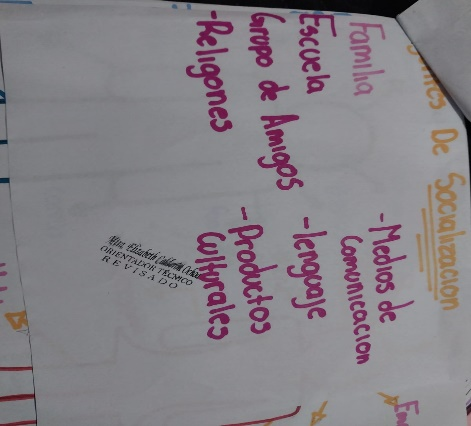 De Socialización
Familia
Escuela
Grupo de Amigos
-Religones
-Medios de
Comunicacion
-lenguaje
-Productos
Culturales
ORIENTADOR TÉCNICO
REVISADO